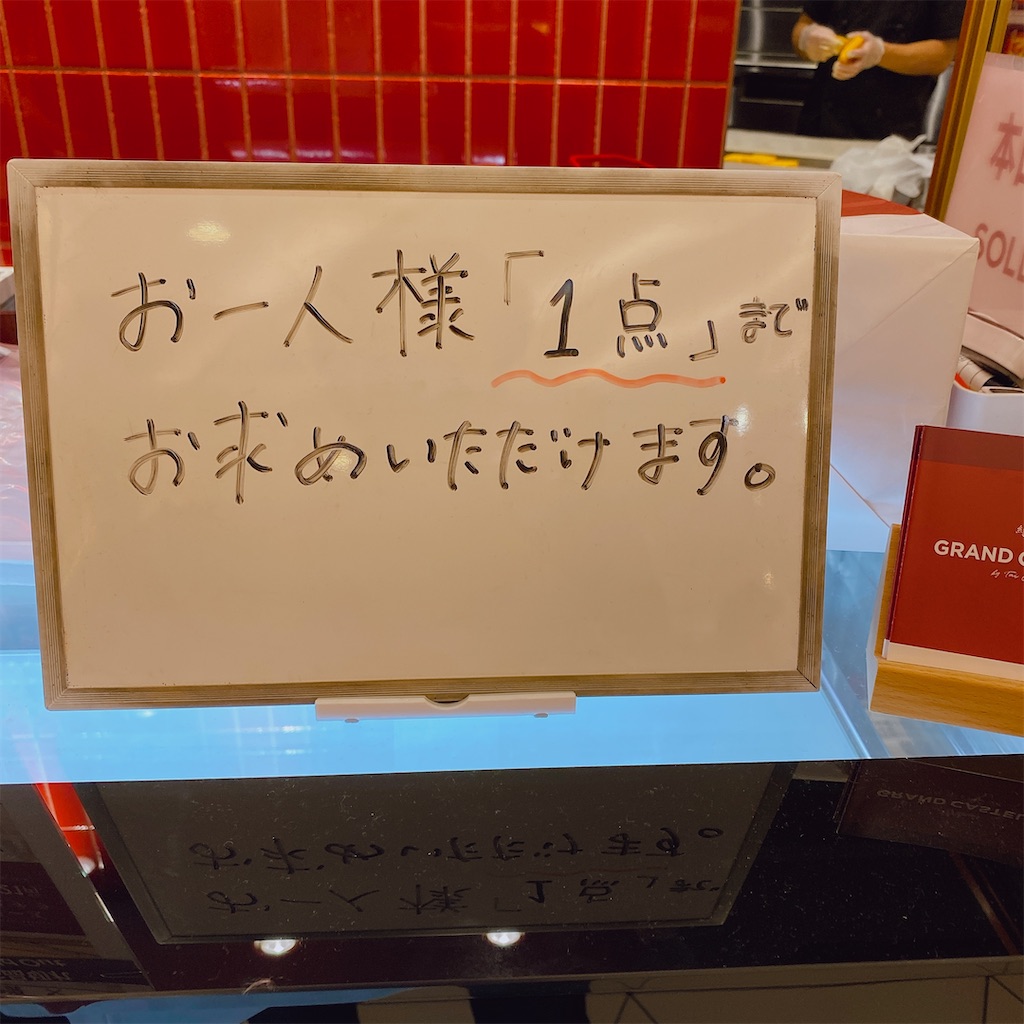 お一人様「1点」まで
お求めいただけます。
本
SOLD
GRAND
GRAND CASTEL